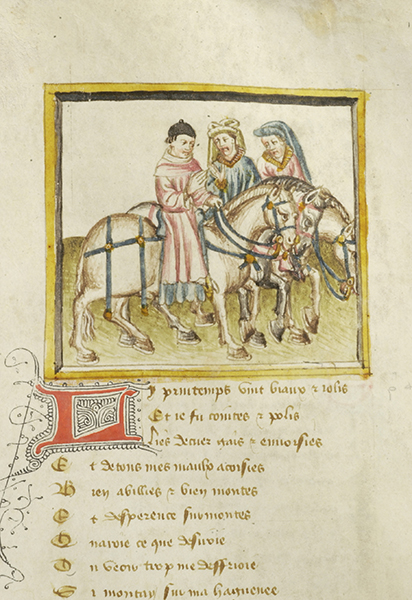 Li printemps vint biaux & iolis
Et ie fu cointes & polis
Lies de cuer gais & envoisies
Et de tous mes maulx acoisies
Bien abillies & bien montes
Et desperence surmontes
Navoie ce que desiroie
On veoir trop me
Si montay sur ma haguenee